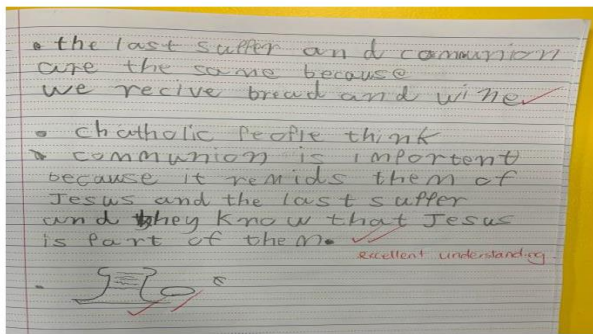 • the last suffer and communion
are the same because
we recive bread and wine
• chatholic people think
• communion is importent
because it remids them of
Jesus and the last suffer
and they know that Jesus
is part of them.
excellent understanding.